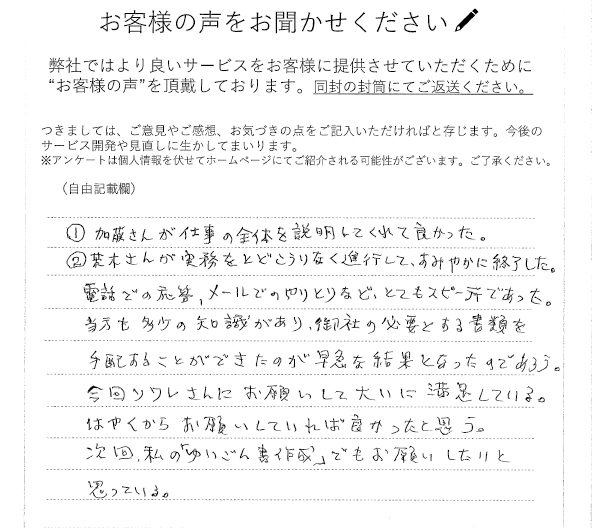 お客様の声をお聞かせください
弊社ではより良いサービスをお客様に提供させていただくために
“お客様の声”を頂戴しております。同封の封筒にてご返送ください。
つきましては、ご意見やご感想、お気づきの点をご記入いただければと存じます。今後の
サービス開発や見直しに生かしてまいります。
※アンケートは個人情報を伏せてホームページにてご紹介される可能性がございます。ご了承ください。
（自由記載欄）
① 加藤さんが仕事の全体を説明してくれて良かった。
② 荒木さんが実務をとどこうりなく進行して、すみやかに終了した。
電話での応答、メールでのやりとりなど、とてもスピーディであった。
当方も多少の知識があり、御社の必要とする書類を
手配することができたのが早急な結果となったのであろう。
今回ソワレさんにお願いして大いに満足している。
はやくからお願いしていれば良かったと思う。
次回、私の「ゆいごん書作成」でもお願いしたいと
思っている。